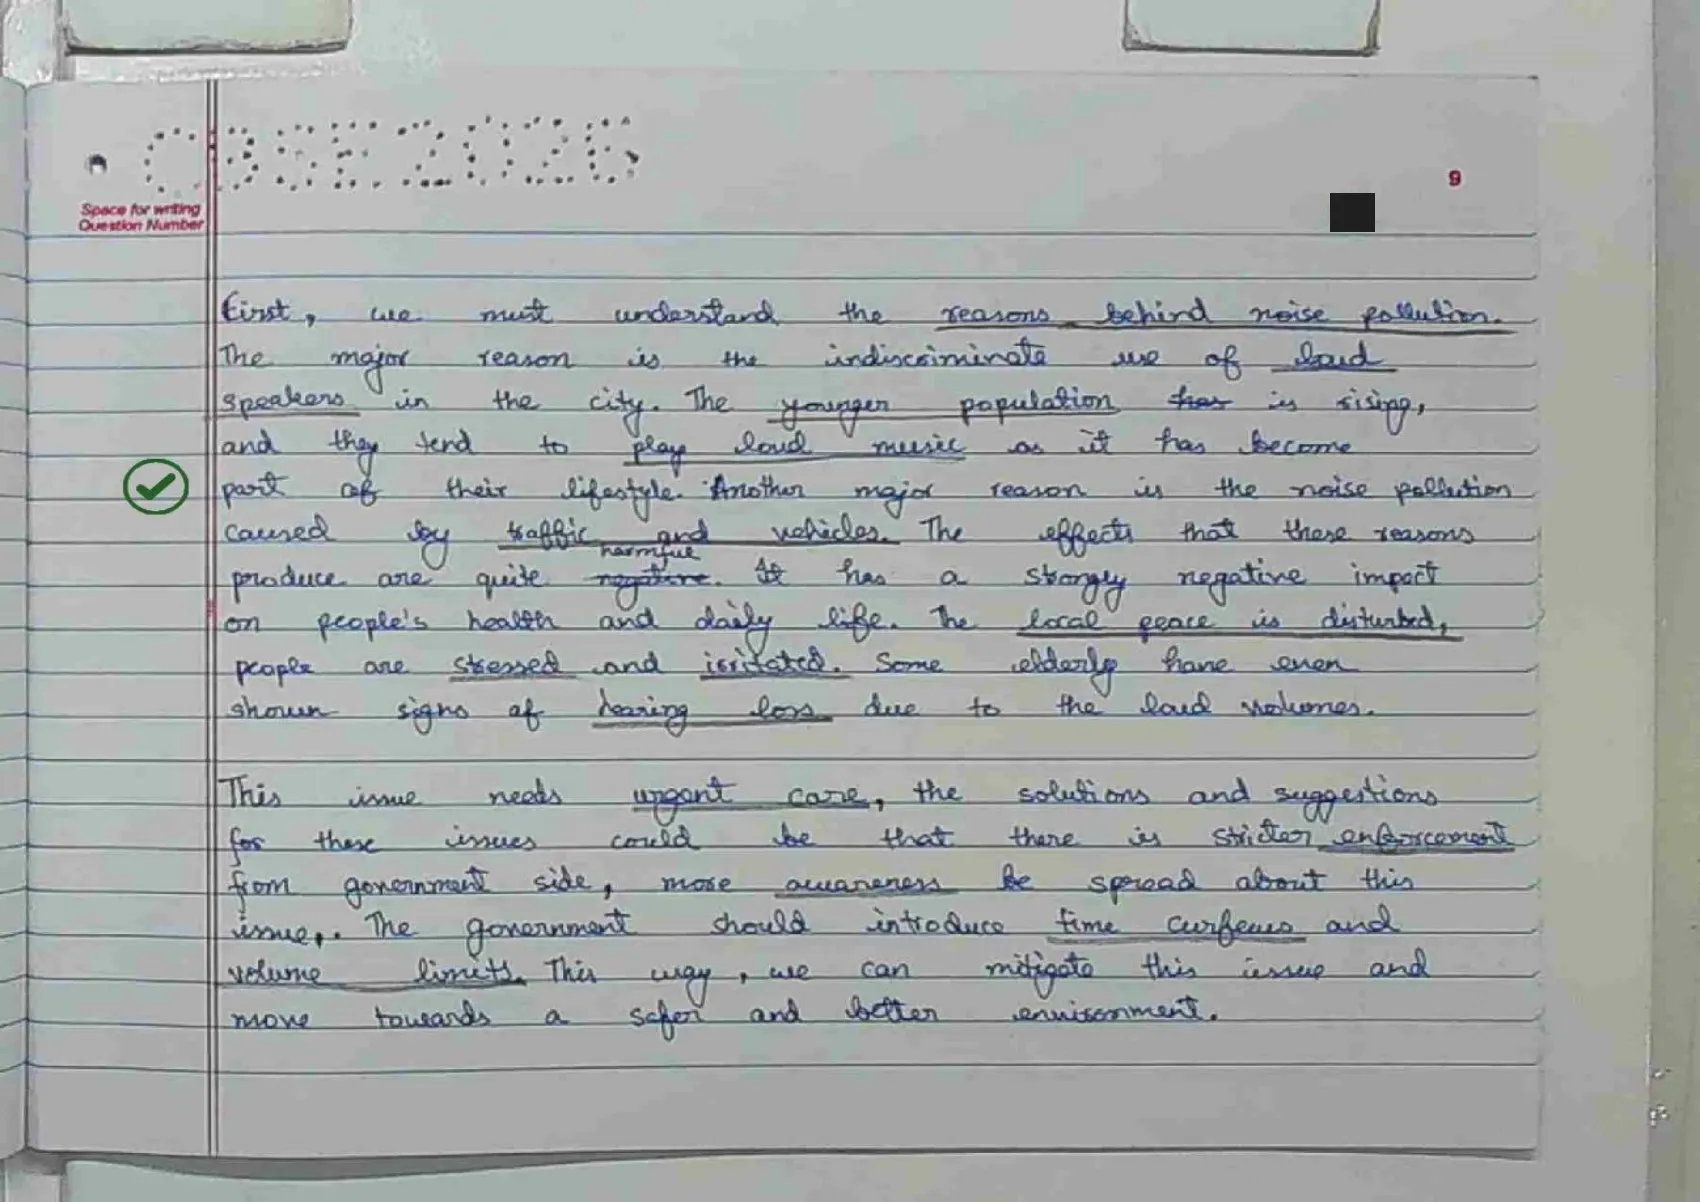 CBSE 2026
9
Space for writing
Question Number
First, we must understand the reasons behind noise pollution.
The major reason is the indiscriminate use of loud
speakers in the city. The younger population has is rising,
and they tend to play loud music as it has become
part of their lifestyle. Another major reason is the noise pollution
caused by traffic and vehicles. The effects that these reasons
harmful
produce are quite negative. It has a strongly negative impact
on people's health and daily life. The local peace is disturbed,
people are stressed and irritated. Some elderly have even
shown signs of hearing loss due to the loud volumes.
This issue needs urgent care, the solutions and suggestions
for these issues could be that there is stricter enforcement
from government side, more awareness be spread about this
issue,. The government should introduce time curfews and
volume limits. This way, we can mitigate this issue and
move towards a safer and better environment.